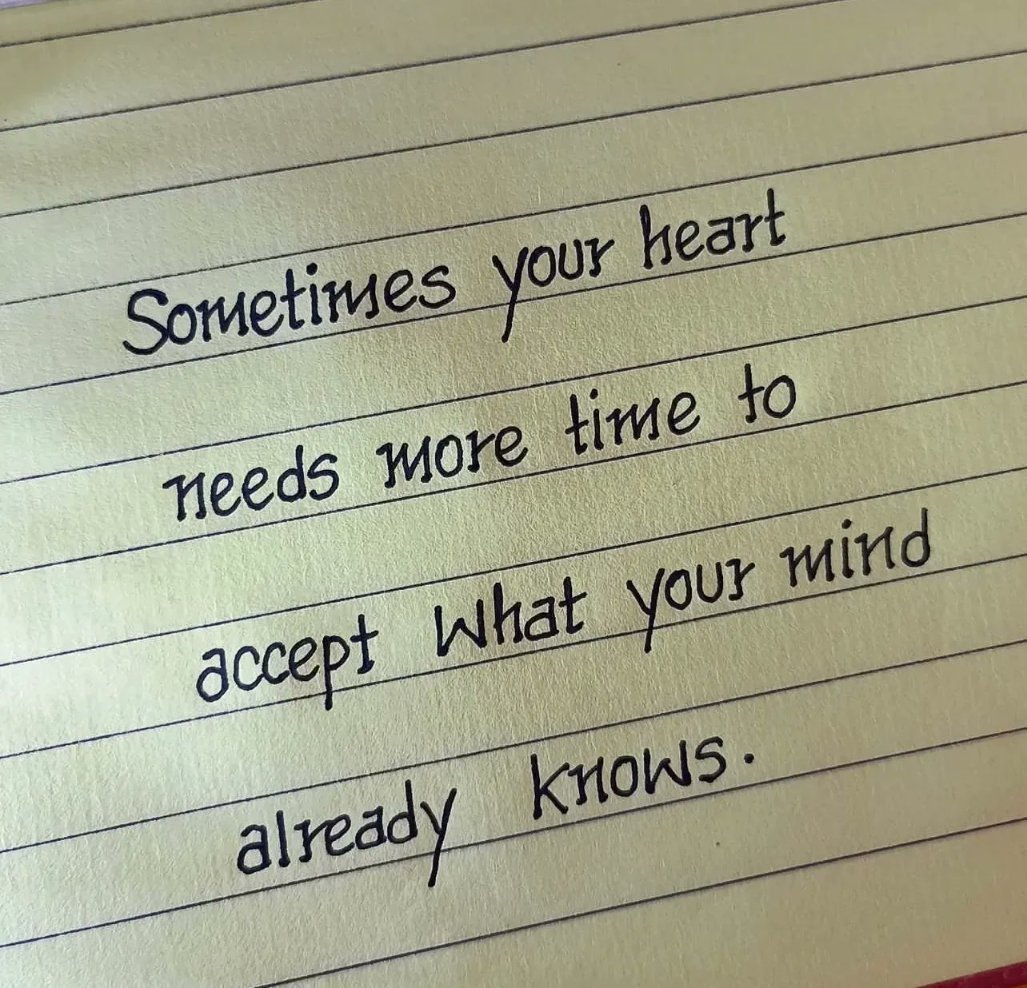 Sometimes your heart
needs more time to
accept What your mind
already knows.